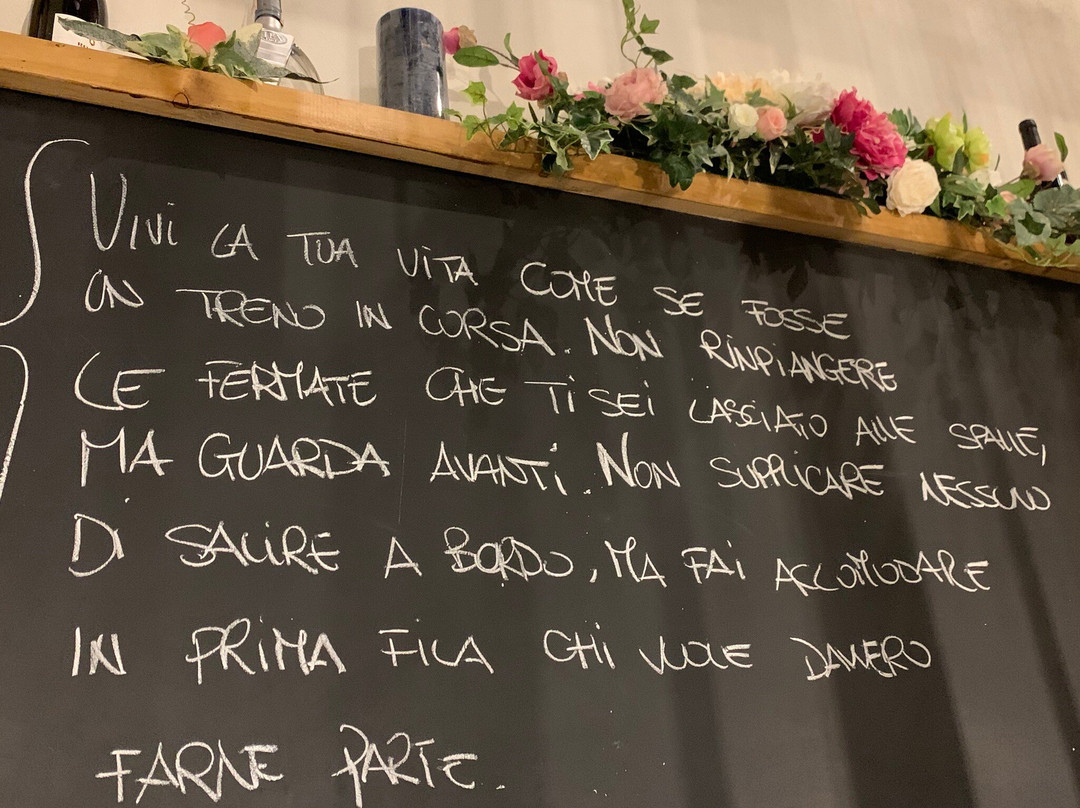 VIVI LA TUA VITA COME SE FOSSE
UN TRENO IN CORSA. NON RINPIANGERE
LE FERMATE CHE TI SEI LASCIATO ALLE SPALLE,
MA GUARDA AVANTI. NON SUPPLICARE NESSUNO
DI SALIRE A BORDO, MA FAI ACCOMODARE
IN PRIMA FILA CHI VUOLE DAVVERO
FARNE PARTE.